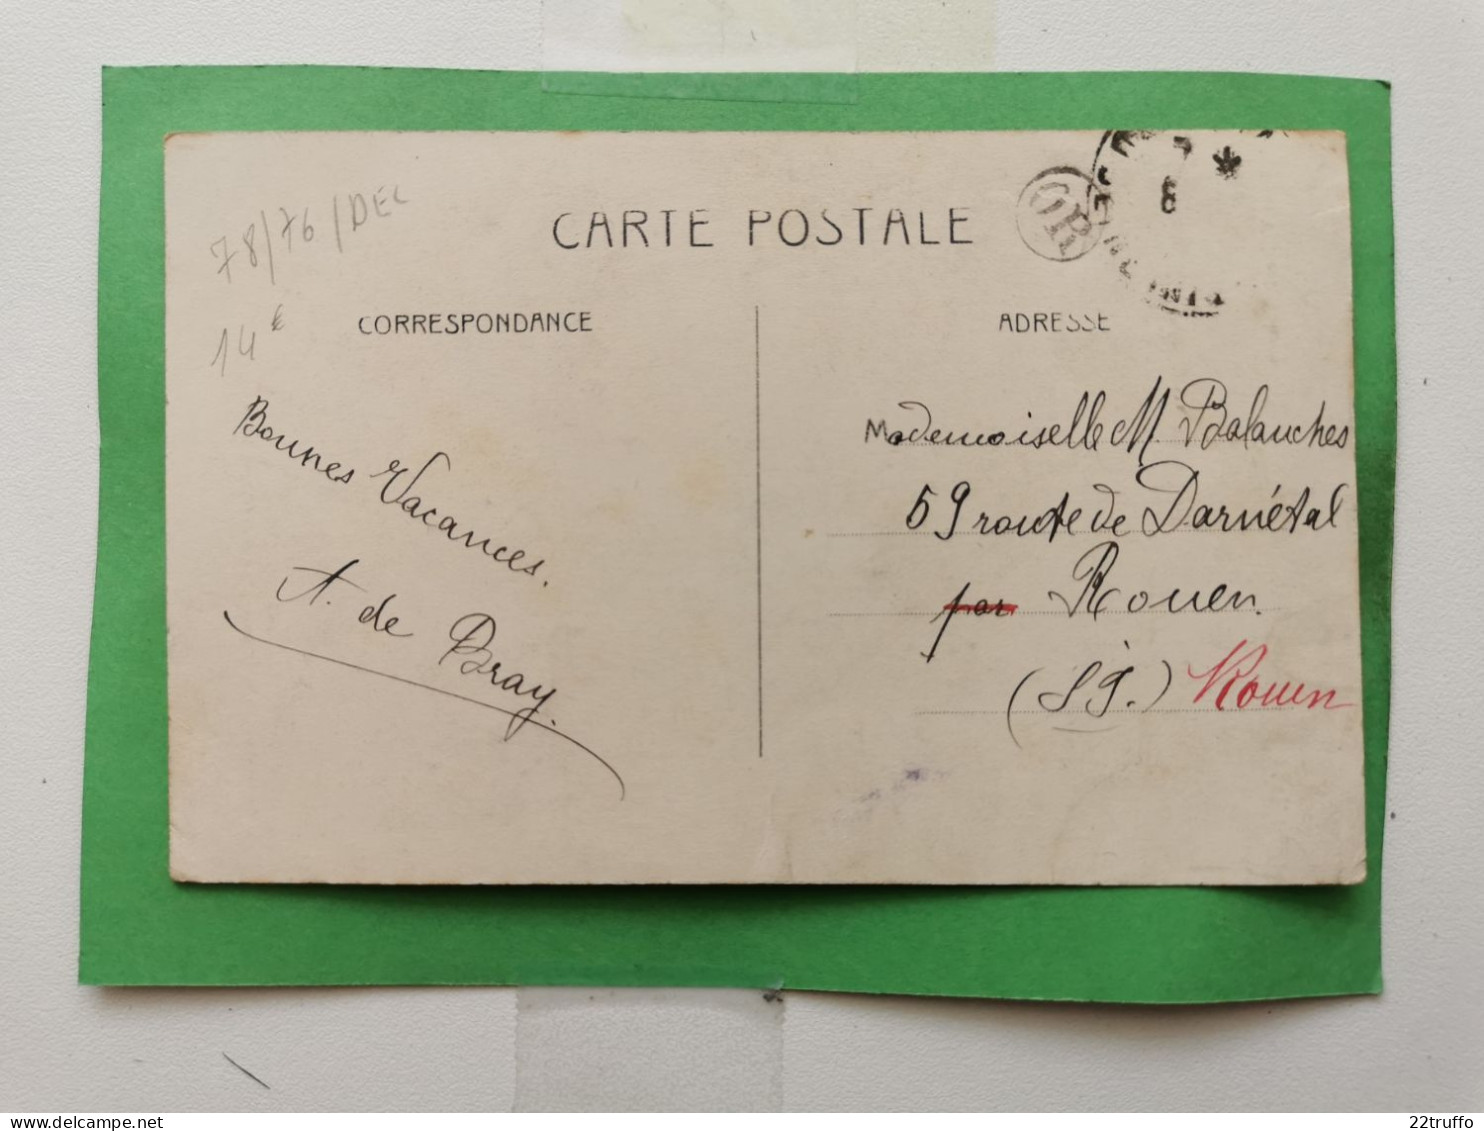 78/76/DEC
14€
CARTE POSTALE
OR
CORRESPONDANCE
ADRESSE
Bonnes Vacances.
A. de Bray.
Mademoiselle M. Balanches
59 route de Darnétal
par Rouen.
(S I.) Rouen
delcampe.net
22truffo